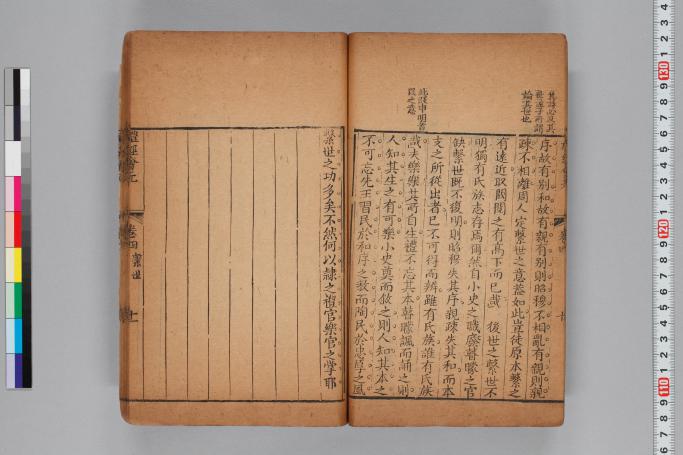 序故有別和故有親有別則昭穆不相亂有親則親
疎不相離周人奠繫世之意蓋如此豈徒原本繫之
有遠近取閥閱之有高下而已哉 後世之繫世不
明獨有氏族志存焉爾然自小史之職廢瞽矇之官
缺繫世既不復明則昭穆失其序親疎失其和而本
支之所從出者已不可得而辨雖有氏族誰有氏族
哉夫樂樂其所自生禮不忘其本瞽矇諷而誦之則
人知其生之有可樂小史奠而敘之則人知其本之
不可忘先王習民於和序之教而陶民於忠厚之風
此段申明首
段之意
論其世也
繫世之功多矣不然何以隷之禮官樂官之學耶
禮經會元
卷四 繫世
十一